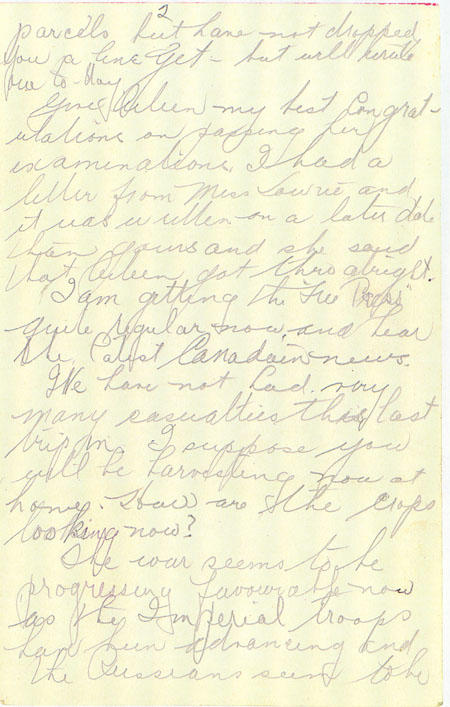 2
parcels but have not dropped
you a line yet - but will write
you to-day
Give Eileen my best Congrat-
ulations on passing her
examinations. I had a
letter from Miss Lowrie and
it was written on a later date
than yours and she said
that Eileen got thro alright.
I am getting the "Free Press"
quite regular now and hear
the latest Canadain news.
We have not had very
many casualties this last
trip in. I suppose you
will be harvesting now at
home. How are the crops
looking now?
The war seems to be
progressing favourable now
as the Imperial troops
have been advancing and
the Russians seem to be